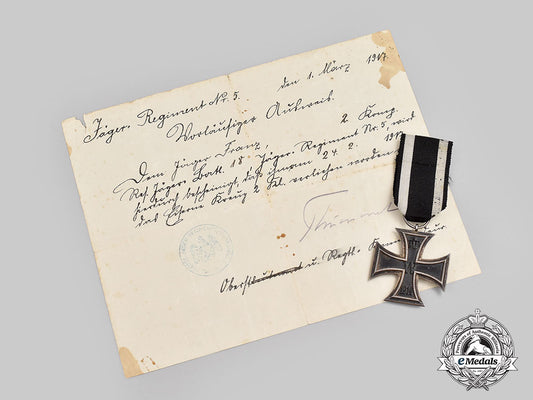 Jäger. Regiment Nr. 5.
den 1. März 1917
Vorläufiger Ausweis.
Dem Jäger Franz, 2. Komp.
Res. Jäger. Batl. 18 Jäger. Regiment Nr. 5, wird
hierdurch bescheinigt, daß ihm am 24. 2. 1917
das Eiserne Kreuz 2. Kl. verliehen worden
Oberstleutnant u. Regts.
eMedals